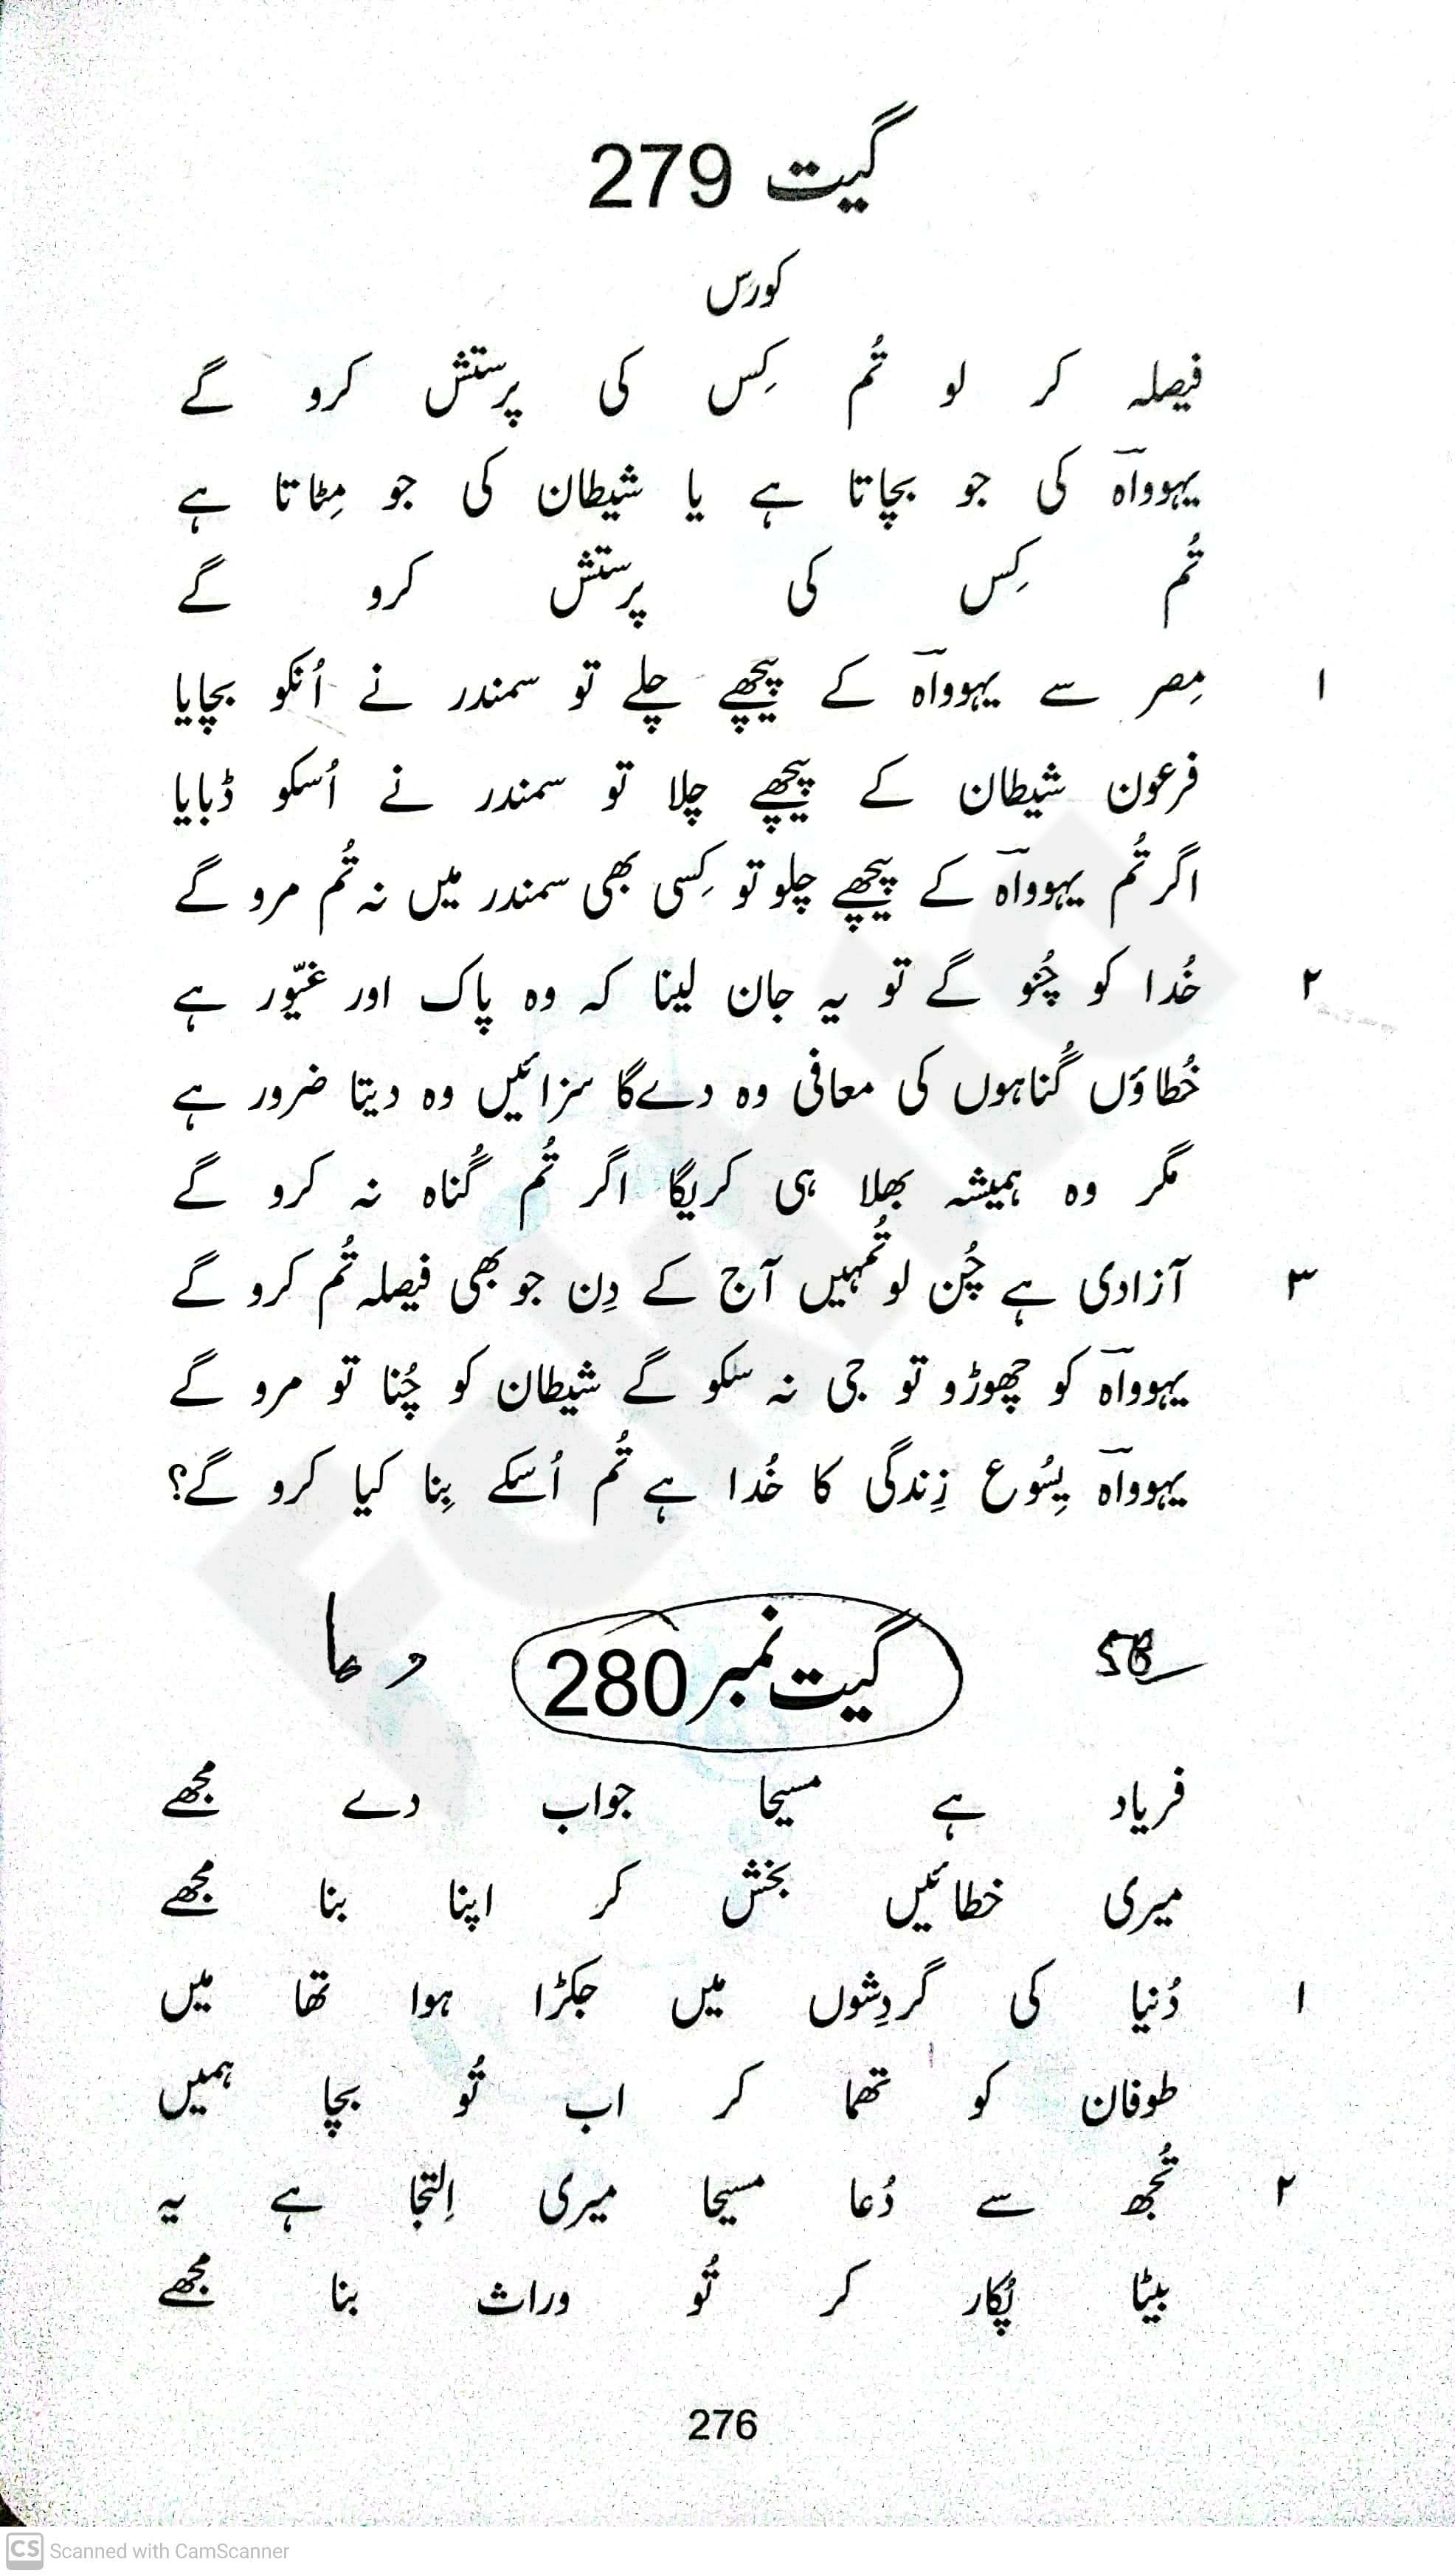 گیت 279
کورس
فیصلہ کر لو تُم کِس کی پرستش کرو گے
یہوواہ کی جو بچاتا ہے یا شیطان کی جو مِٹاتا ہے
تُم کِس کی پرستش کرو گے
۱ مِصر سے یہوواہ کے پیچھے چلے تو سمندر نے اُنکو بچایا
فرعون شیطان کے پیچھے چلا تو سمندر نے اُسکو ڈبایا
اگر تُم یہوواہ کے پیچھے چلو تو کِسی بھی سمندر میں نہ تُم مرو گے
۲ خُدا کو چُنو گے تو یہ جان لینا کہ وہ پاک اور غیّور ہے
خُطاؤں گُناہوں کی معافی وہ دےگا سزائیں وہ دیتا ضرور ہے
مگر وہ ہمیشہ بھلا ہی کریگا اگر تُم گُناہ نہ کرو گے
۳ آزادی ہے چُن لو تُمہیں آج کے دِن جو بھی فیصلہ تُم کرو گے
یہوواہ کو چھوڑو تو جی نہ سکو گے شیطان کو چُنا تو مرو گے
یہوواہ یِسُوع زِندگی کا خُدا ہے تُم اُسکے بِنا کیا کرو گے؟
گیت نمبر 280
فریاد ہے مسیحا جواب دے مجھے
میری خطائیں بخش کر اپنا بنا مجھے
۱ دُنیا کی گردِشوں میں جکڑا ہوا تھا میں
طوفان کو تھما کر اب تُو بچا ہمیں
۲ تُجھ سے دُعا مسیحا میری اِلتجا ہے یہ
بیٹا پُکار کر تُو وراث بنا مجھے
276
CS Scanned with CamScanner